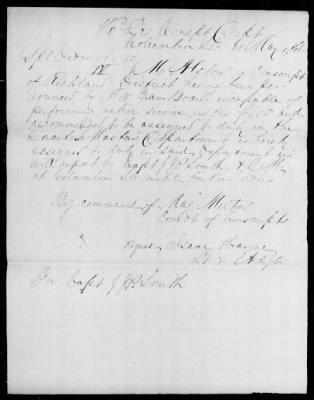 Hd Qrs Conscpt Dept
Columbia So Ca May 1, 186
Spl Orders No 12
IV W My Alston a Conscript
of Richland District having been pro
nounced by Med Exam Board incapable of
performing active service in the field and
recommended to be assigned to duty in the
Quarter Masters Department is hereby
assigned to duty in said Department and
will report to Capt J P Smith A Q M
at Columbia So until further orders
By command of Maj Melton
Comdt of Conscripts
signed Isaac Hayne
Lt & Adjt
For Capt J P Smith